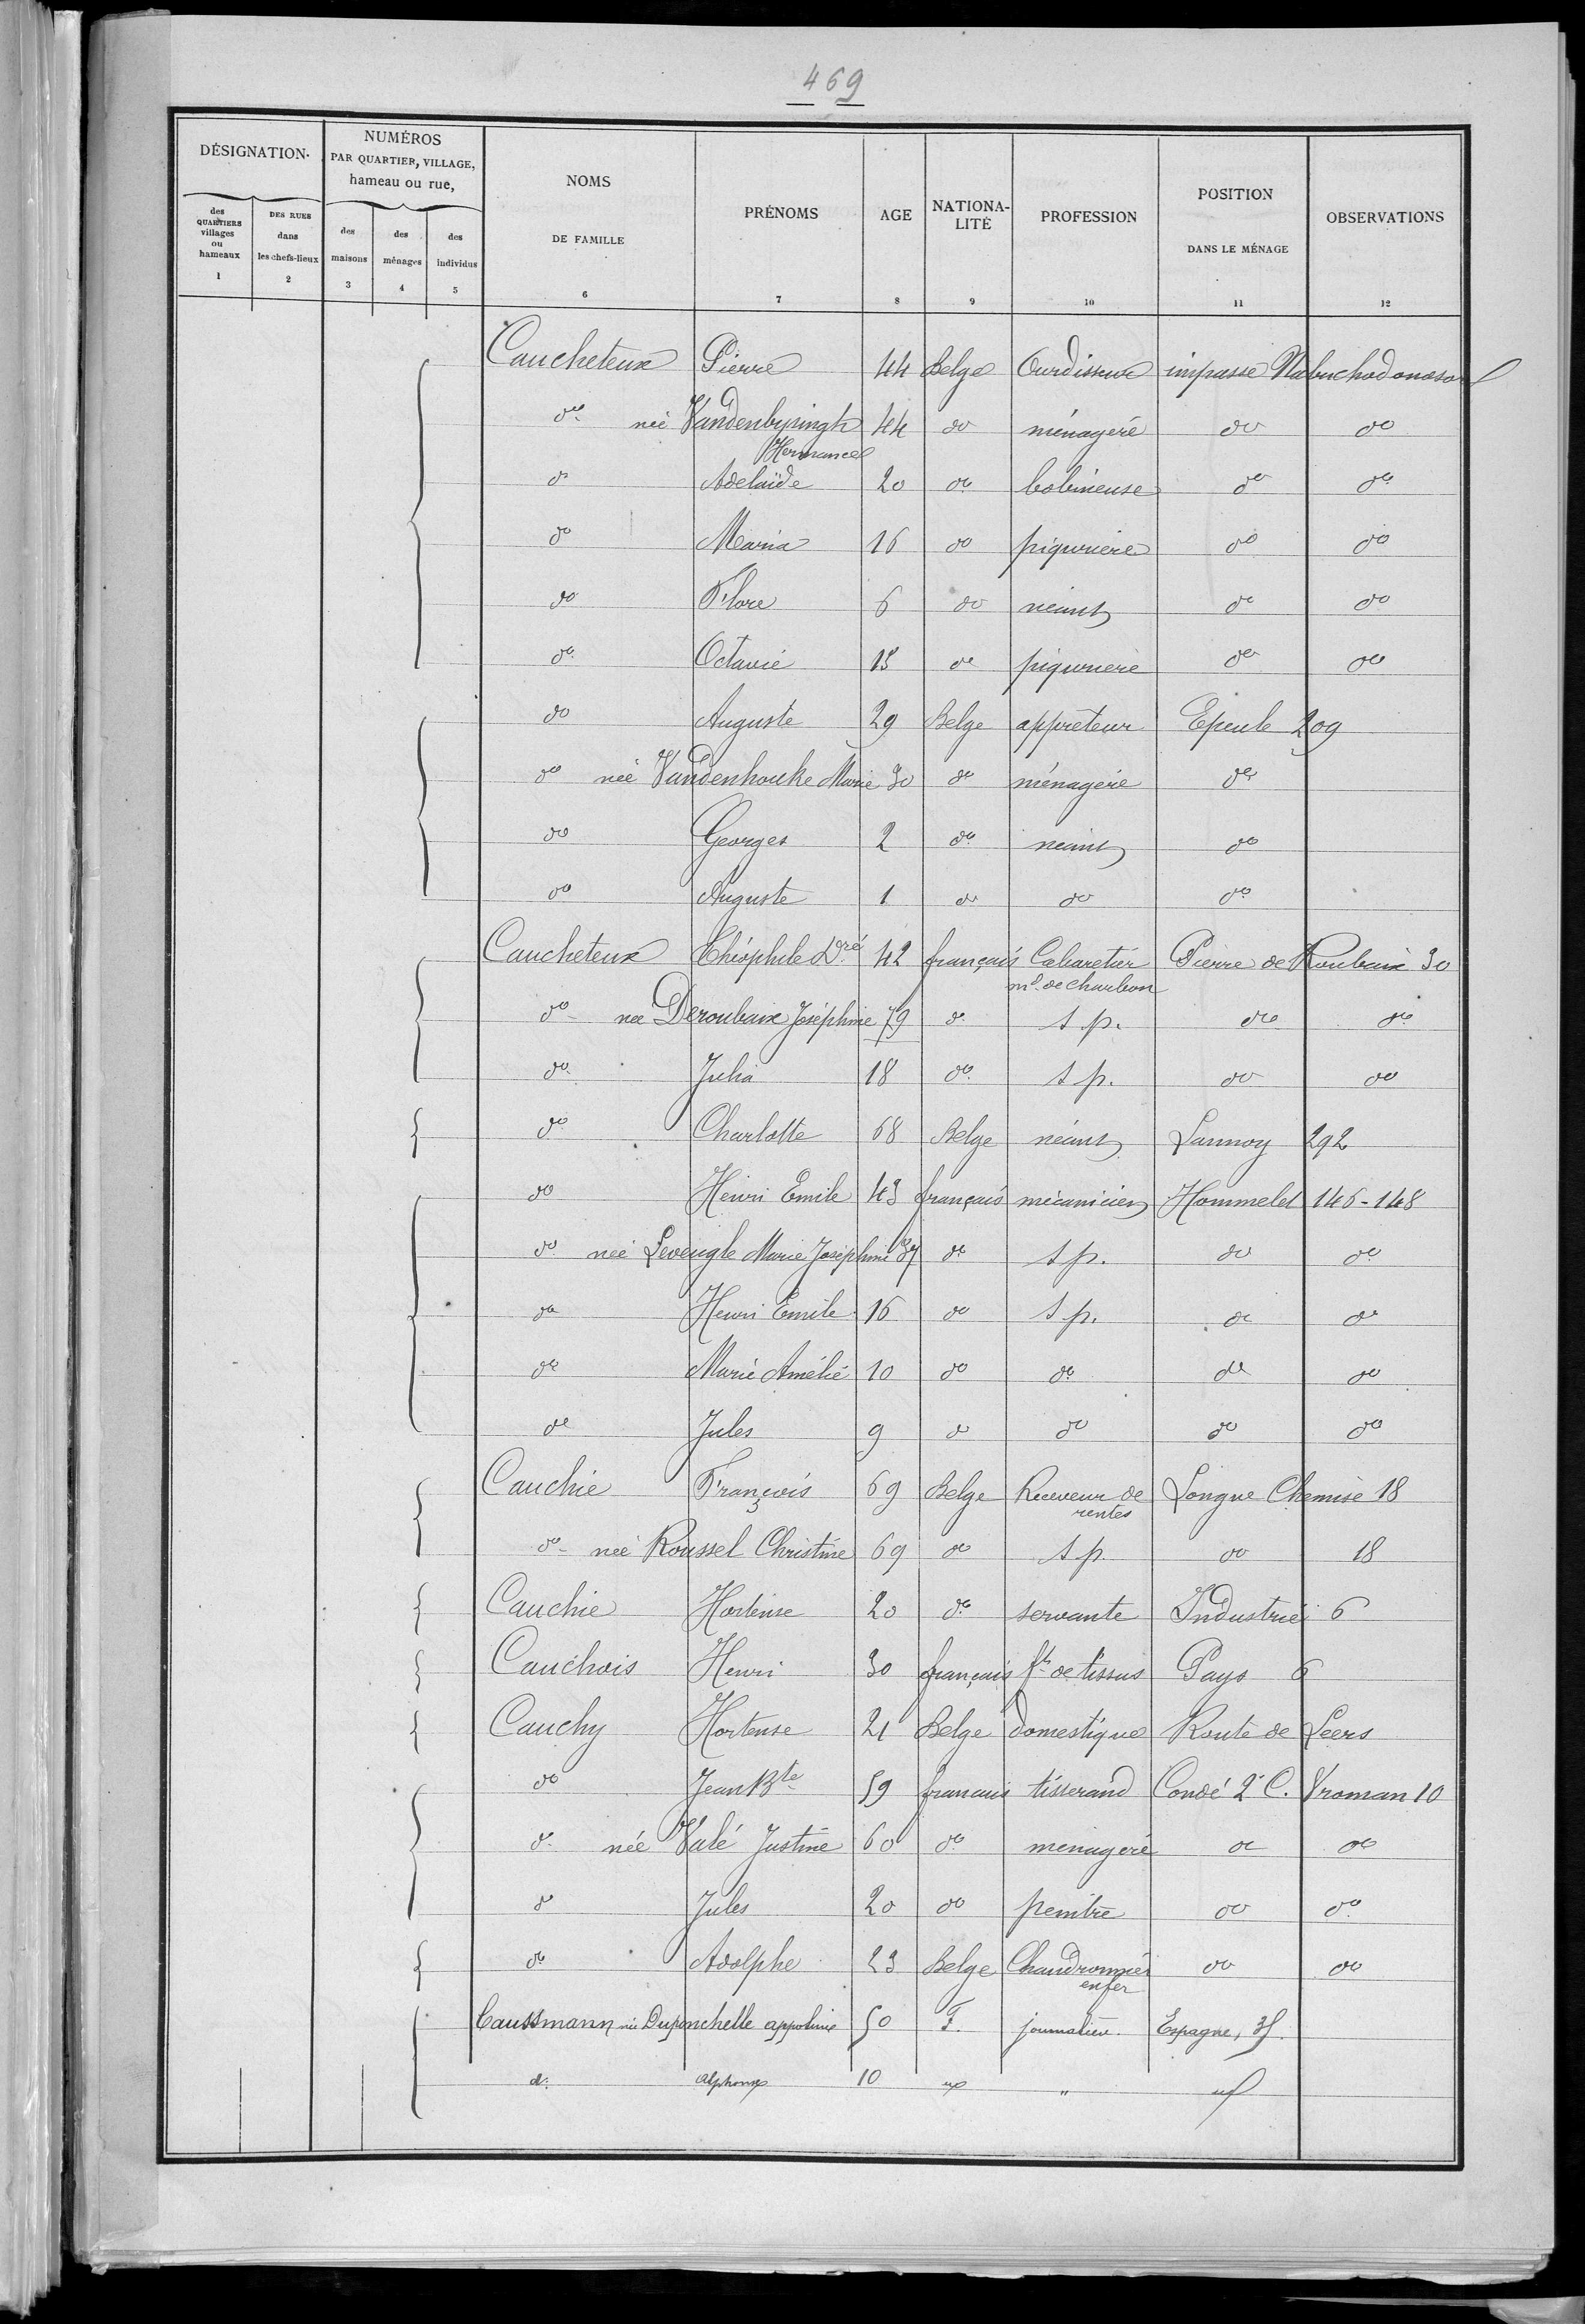 469
DÉSIGNATION
NUMÉROS PAR QUARTIER, VILLAGE, hameau ou rue,
des QUARTIERS villages ou hameaux 1
DES RUES dans les chefs-lieux 2
des maisons 3
des ménages 4
des individus 5
NOMS DE FAMILLE 6
PRÉNOMS 7
AGE 8
NATIONALITÉ 9
PROFESSION 10
POSITION DANS LE MÉNAGE 11
OBSERVATIONS 12
Caucheteux Pierre 44 Belge Ourdisseur impasse Nabuchodonosor
do née Vandenbyringh Hermance 44 do ménagère do do
do Adelaïde 20 do bobineuse do do
do Maria 16 do piqurière do do
do Flore 6 do néant do do
do Octavie 15 do piqurière do do
do Auguste 29 Belge apprêteur Epeule 209
do née Vandenhouke Marie 30 do ménagère do
do Georges 2 do néant do
do Auguste 1 do do do
Caucheteux Théophile Dré 42 français Cabaretier md de charbon Pierre de Roubaix 30
do née Deroubaix Joséphine 79 do s p. do do
do Julia 18 do s p. do do
do Charlotte 68 Belge néant Lannoy 292
do Henri Emile 43 français mécanicien Hommelet 146-148
do née Leveugle Marie Joséphine 37 do s p. do do
do Henri Emile 16 do s p. do do
do Marie Amélie 10 do do do do
do Jules 9 do do do do
Cauchie François 69 Belge Receveur de rentes Longue Chemise 18
do née Roussel Christine 69 do s p do 18
Cauchie Hortense 20 do servante Industrie 6
Cauchois Henri 30 français ft de tissus Pays 6
Cauchy Hortense 21 Belge domestique Route de Leers
do Jean Bte 59 francais tisserand Condé 2e C. Vroman 10
do née Valé Justine 60 do menagère do do
do Jules 20 do peintre do do
do Adolphe 23 Belge Chaudronnier en fer do do
Caussmann née Duponchelle appoline 50 F. journalière. Espagne, 35.
d: alphonse 10 "